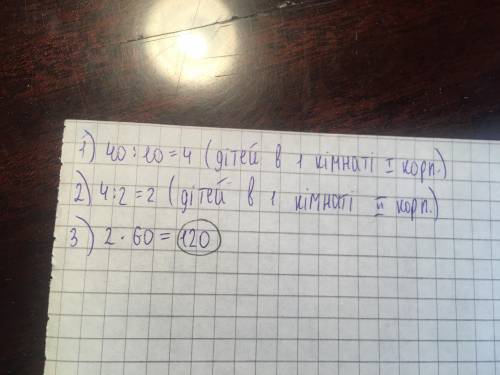 1) 40:10=4 (дітей в 1 кімнаті I корп.)
2) 4:2=2 (дітей в 1 кімнаті II корп.)
3) 2·60=120